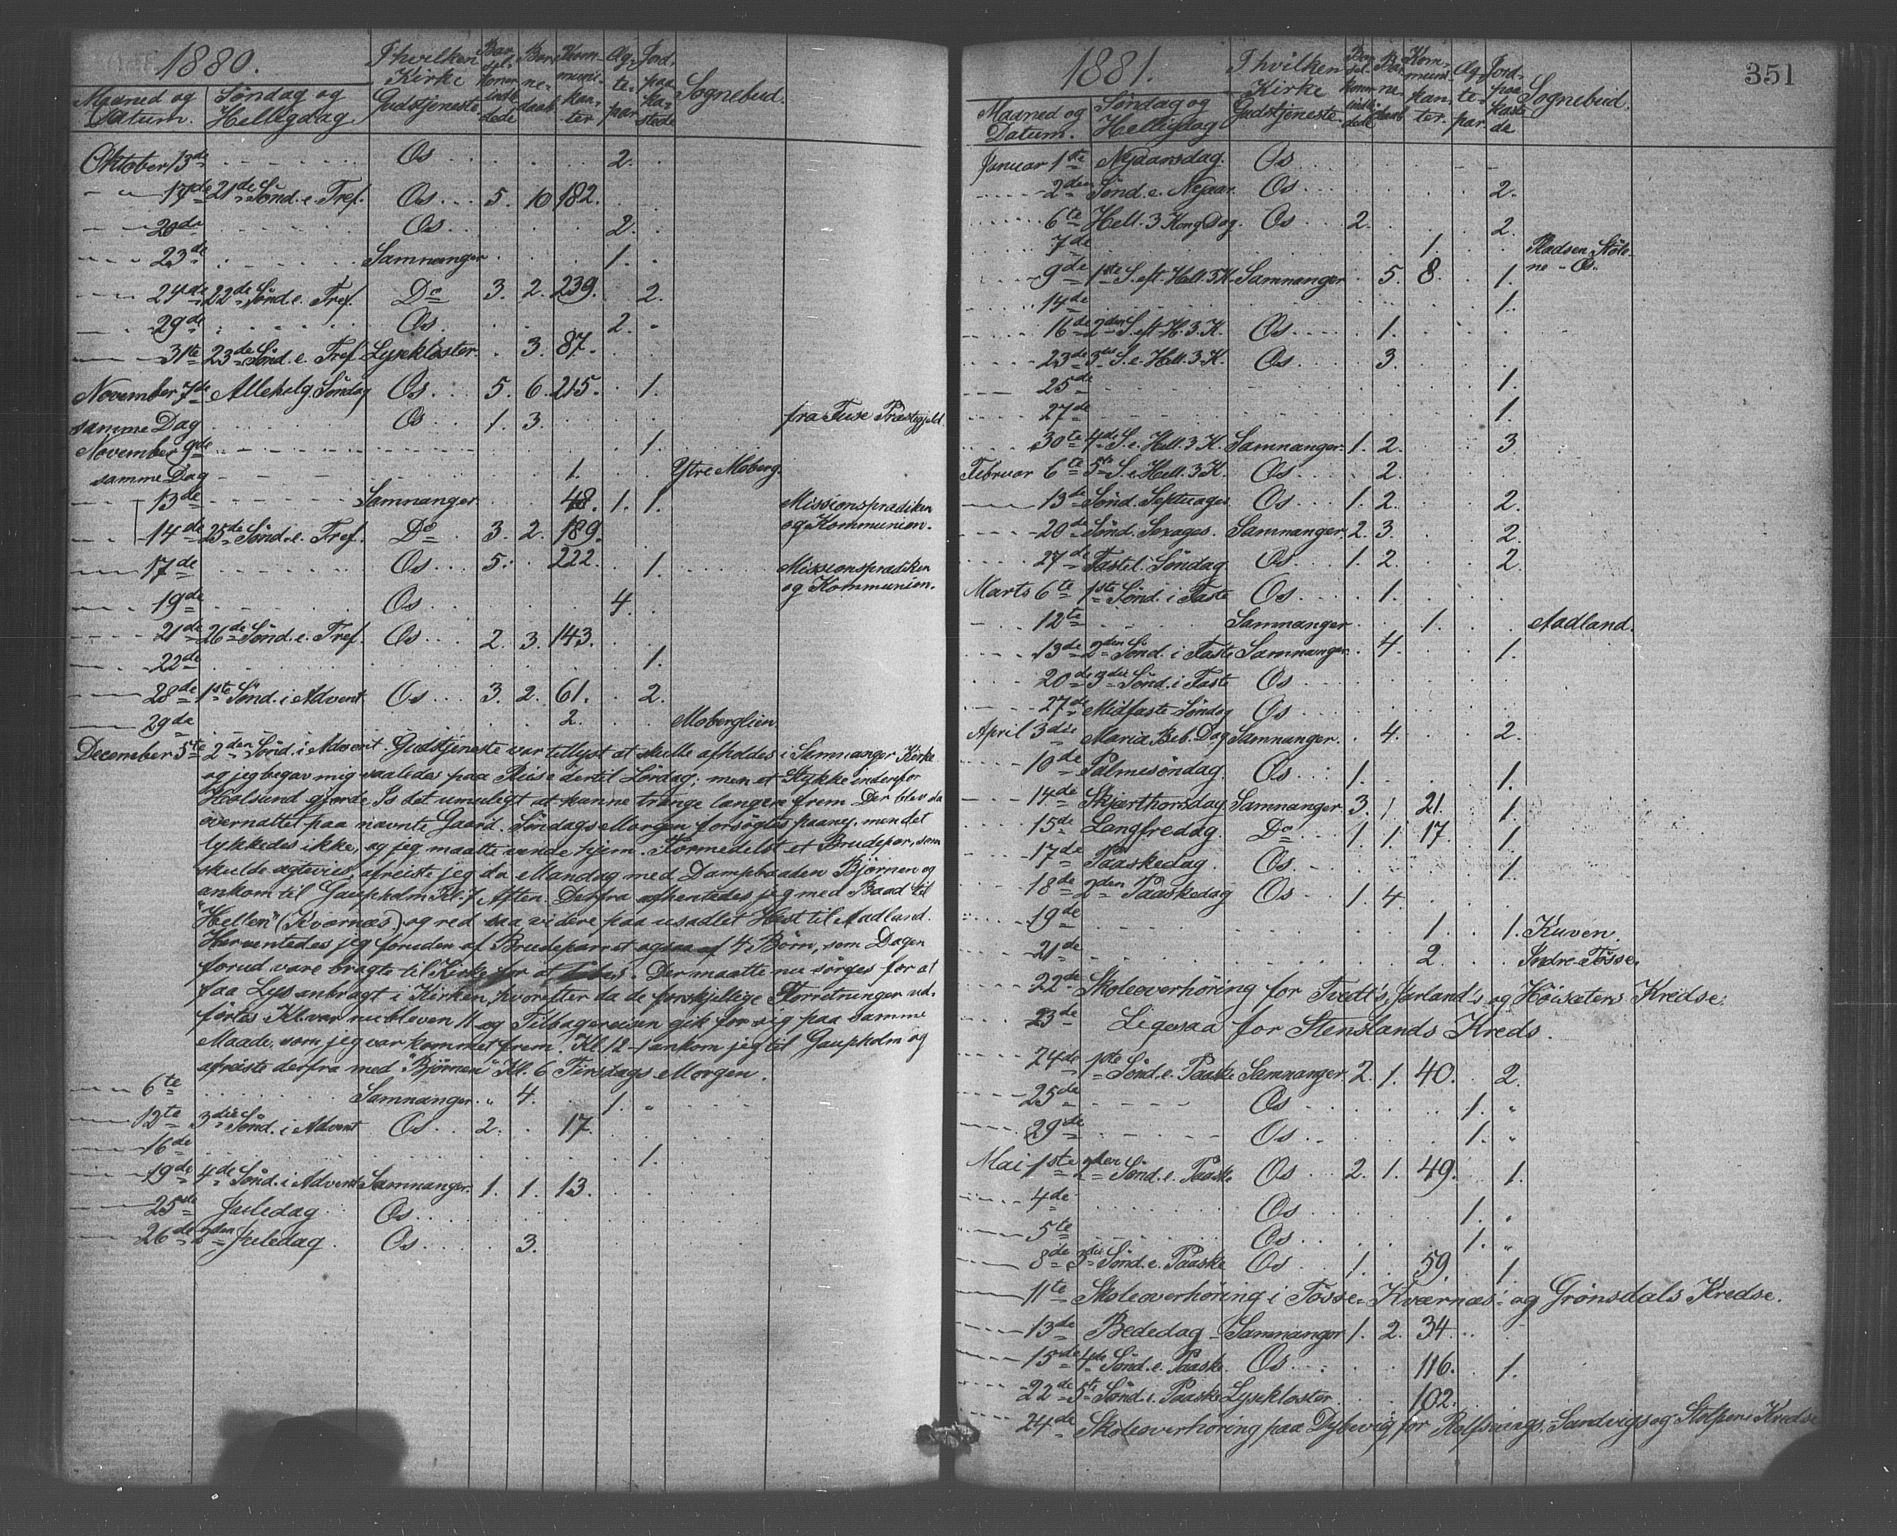 1880.
Maaned og Datum. Søndag og Helligdag I hvilken Kirke Gudstjeneste Barselkonner indledede Barnedaab Kommunikanter Ægtepar Jordpaakastede Sognebud.
Oktober 13de Os 2.
17de 21de Sønd. e. Tref. Os 5. 10 182.
20de Os 2.
23de Samnanger 1.
24de 22de Sønd. e. Tref. Do 3. 2. 239. 2.
29de Os 2.
31te 23de Sønd. e. Tref. Lysekloster 3. 87.
November 7de Allehelg. Søndag Os 5. 6. 215. 1.
samme Dag Os 1. 3. fra Fuse Præstegjeld.
November 9de 1.
samme Dag 1. Ytre Moberg
13de Samnanger 48. 1. 1. Missionsprædiken
14de 25de Sønd. e. Tref. Do 3. 2. 189. og Kommunion.
17de Os 5. 222. 1. Missionsprædiken
og Kommunion.
19de Os 4.
21de 26de Sønd. e. Tref. Os 2. 3. 143.
22de 1.
28de 1ste Sønd. i Advent Os 3. 2. 61. 2.
29de 2. Moberglien
December 5te 2den Sønd. i Advent. Gudstjeneste var tillyst at skulle afholdes i Samnanger Kirke
og jeg begav mig saaledes paa Reise dertil Lørdag; men et Stykke indenfor
Holsund gjorde Is det umuligt at kunne trænge længer frem. Der blev da
overnattet paa nævnte Gaard. Søndags Morgen forsøgtes paany, men det
lykkedes ikke, og jeg maatte vende hjem. Formedelst et Brudepar, som
skulde ægtevies, afreiste jeg da Mandag med Dampbaaden Bjørnen og
ankom til Gaupholm Kl. 7 Aften. Derfra afhentedes jeg med Baad til
"Hellen" (Kvernæs) og red saa videre paa usadlet Hest til Aadland.
Her ventedes jeg foruden af Brudeparret ogsaa af 4 Børn, som Dagen
forud vare bragte til Kirke for at. Der maatte nu sørges for at
faa Lys anbragt i Kirken, hvorefter da de forskjellige Forretninger ud-
førtes. Kl. var nu bleven 11 og Tilbagereisen gik for sig paa samme
Maade, som jeg var kommet frem. Kl. 12-1 ankom jeg til Gaupholm og
afreiste derfra med "Bjørnen" Kl. 6 Tirsdags Morgen.
6te Samnanger 4. 1.
12te 3die Sønd. i Advent Os 2. 17.
16de 1.
19de 4de Sønd. i Advent Samnanger. 1. 1. 13.
25de Juledag Os
26de 2den Juledag. Os 3.
1881. 351
Maaned og Datum. Søndag og Helligdag I hvilken Kirke Gudstjeneste Barselkonner indledede Barnedaab Kommunikanter. Ægtepar. Jordpaakastede Sognebud.
Januar 1ste Nyaarsdag. Os
2den Sønd. e. Nyaar. Os 2.
6te Hell. 3 Kong. Dag. Os 2. 2.
7de 1. Støle-
9de 1ste S. eft. Hell. 3 K. Samnanger 5. 8. 1. ne - Os.
14de 1.
16de 2den S. eft. H. 3. K. Os 1.
23de 3die S. e. Hell. 3 K. Os 3.
25de 1.
27de 1.
30te 4de S. e. Hell. 3 K. Samnanger. 1. 2. 3
Februar 6te 5te S. e. Hell. 3 K. Os 2.
13de Sønd. Septuages. Os 1. 2. 2.
20de Sønd. Sexages. Samnanger. 2. 3. 2.
27de Fastel. Søndag Os 1. 2. 2
Marts 6te 1ste Sønd. i Faste Os 1.
12te Samnanger 1. Aadland.
13de 2den Sønd. i Faste Samnanger. 4. 1.
20de 3die Sønd. i Faste Os
27de Midfaste Søndag Os
April 3die Mariæ Beb. Dag Samnanger. 4. 2.
10de Palmesøndag Os 1. 1.
14de Skjærthorsdag Samnanger 3. 1 21. 1.
15de Langfredag. Do 1. 1. 17. 1.
17de Paaskedag. Os 1.
18de 2den Paaskedag Os 1. 4.
19de 1. 1. Kuven.
21de 2. Indre Tøsse.
22de Skoleoverhøring for Tvedt's, Jarland's og Høisæters Kredse.
23de Ligesaa for Stenslands Kreds.
24de 1ste Sønd. e. Paaske Samnanger 2. 1. 40. 2.
25de Os 1. "
29de Os 1. "
Mai 1ste 2den Sønd. e. Paaske Os 2. 1. 49. 1.
4de Os 1. "
5te Os 1. "
8de 3die Sønd. e. Paaske Os 1. 59. 1.
11te Skoleoverhøring i Tøsse- Kværnæs- og Grønsdals Kredse.
13de Bededag Samnanger 1. 2. 34
15de 4de Sønd. e. Paaske Os 116. 1.
22de 5te Sønd. e. Paaske Lysekloster 102.
24de Skoleoverhøring paa Dybevig for Sandvigs og Kredse